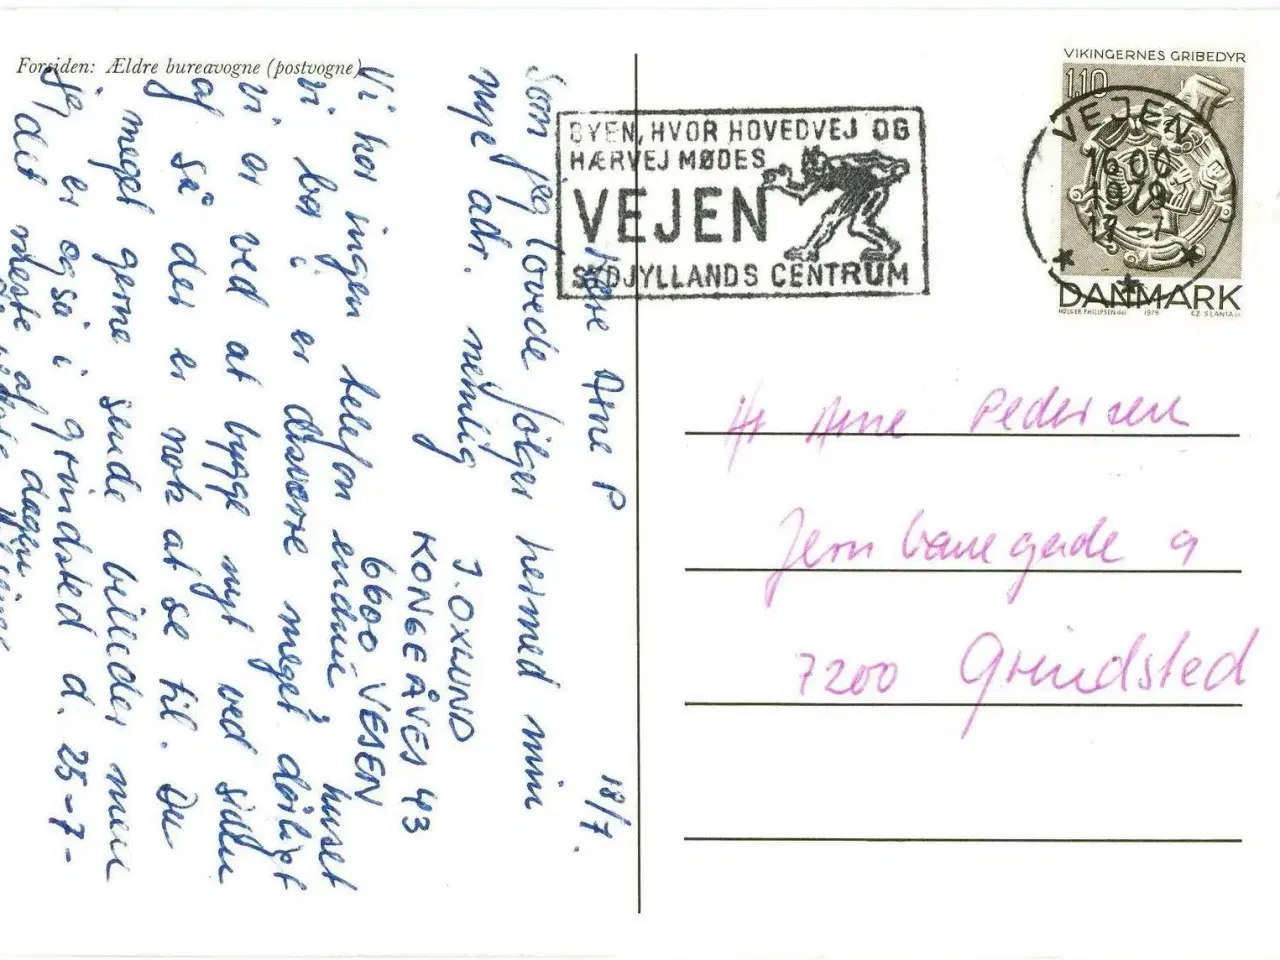 Forsiden: Ældre bureauvogne (postvogne)
Kære Arne P
18/7.
Som jeg lovede følger hermed min
nye adr. nemlig
J. OXLUND
KONGEÅVEJ 43
6600 VEJEN
Vi har ingen telefon endnu, huset
vi bor i er desværre meget dårligt
vi er ved at bygge nyt ved siden
af så der er nok at se til. Du
må meget gerne sende billeder men
jeg er også i Grindsted d. 25-7-
det meste af dagen
BYEN, HVOR HOVEDVEJ OG
HÆRVEJ MØDES
VEJEN
SYDJYLLANDS CENTRUM
VIKINGERNES GRIBEDYR
110
VEJEN
16 00
1979
17-7
DANMARK
HOLGER PHILIPSEN del. 1979 CZ. SLANIA sc.
Hr Arne Pedersen
Jernbanegade 9
7200 Grindsted